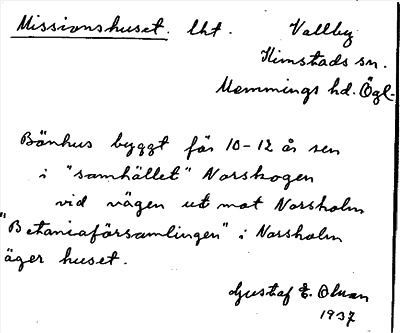 Missionshuset. lht. Vallby
Kimstads sn.
Memmings hd. Ögl.
Bönhus byggt för 10-12 år sen
i "samhället" Norskogen
vid vägen ut mot Norsholm
"Betaniaförsamlingen" i Norsholm
äger huset.
Gustaf E. Olson
1937